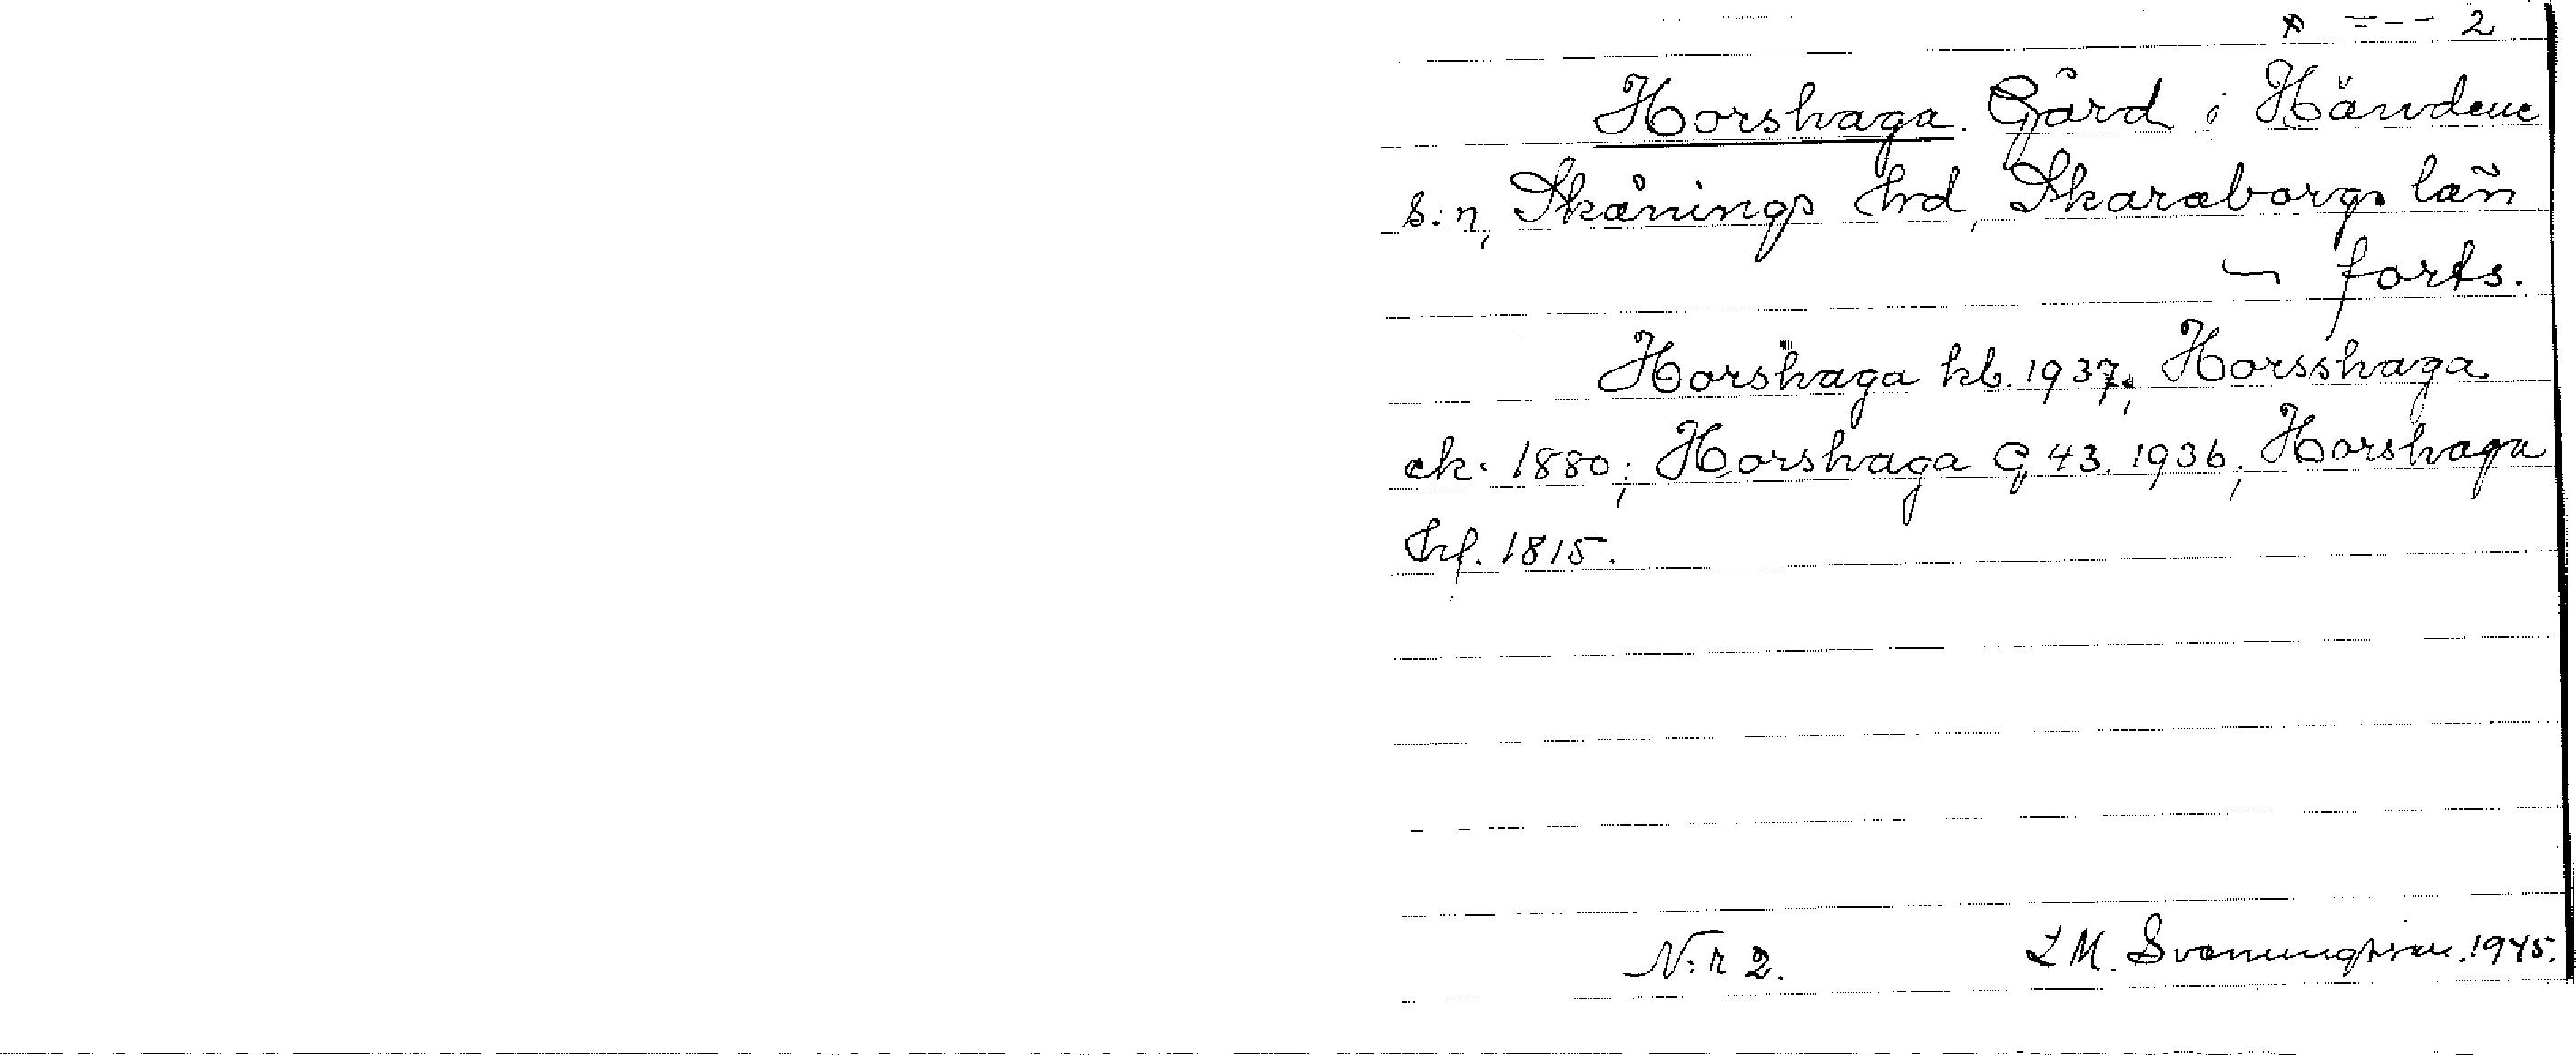 * = - - 2
Horshaga. Gård i Händene
s:n, Skånings hrd, Skaraborgs län
~ forts.
Horshaga kb. 1937; Horsshaga
ek. 1880; Horshaga G 43. 1936; Horshaga
hrf. 1815.
N:r 2. L M. Svenungsson. 1945.